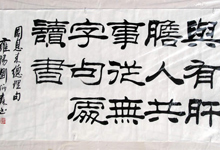 與有肝
膽人共
事從無
字句處
讀書
周恩来總理句